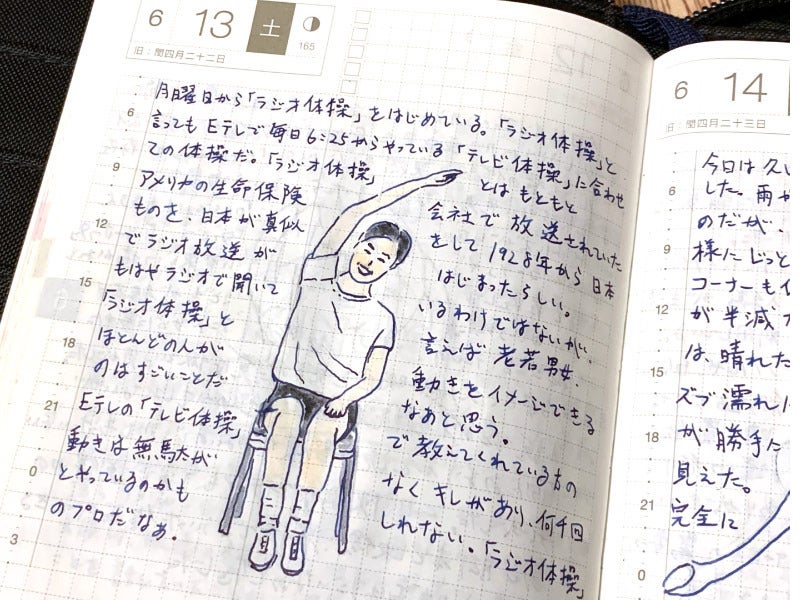 6 13 土
165
旧:閏四月二十二日
月曜日から「ラジオ体操」をはじめている。「ラジオ体操」と
言っても Eテレで毎日6:25からやっている「テレビ体操」に合わせ
ての体操だ。「ラジオ体操」とは もともと
アメリカの生命保険 会社で放送されていた
ものを、日本が真似 をして1928年から日本
でラジオ放送が はじまったらしい。
もはやラジオで聞いて いるわけではないが、
「ラジオ体操」と 言えば老若男女、
ほとんどの人が 動きをイメージできる
のはすごいことだ なあと思う。
Eテレの「テレビ体操」 で教えてくれている方の
動きは無駄が なくキレがあり、何千回
とやっているのかも しれない。「ラジオ体操」
のプロだなあ。
6
9
12
15
18
21
0
3
6 14
旧:閏四月二十三日
今日は久し
した。雨が
のだが、
様にじっと
コーナーも
が半減
は、晴れた
ズブ濡れ
が勝手に
見えた。
完全に
6
9
12
15
18
21
0